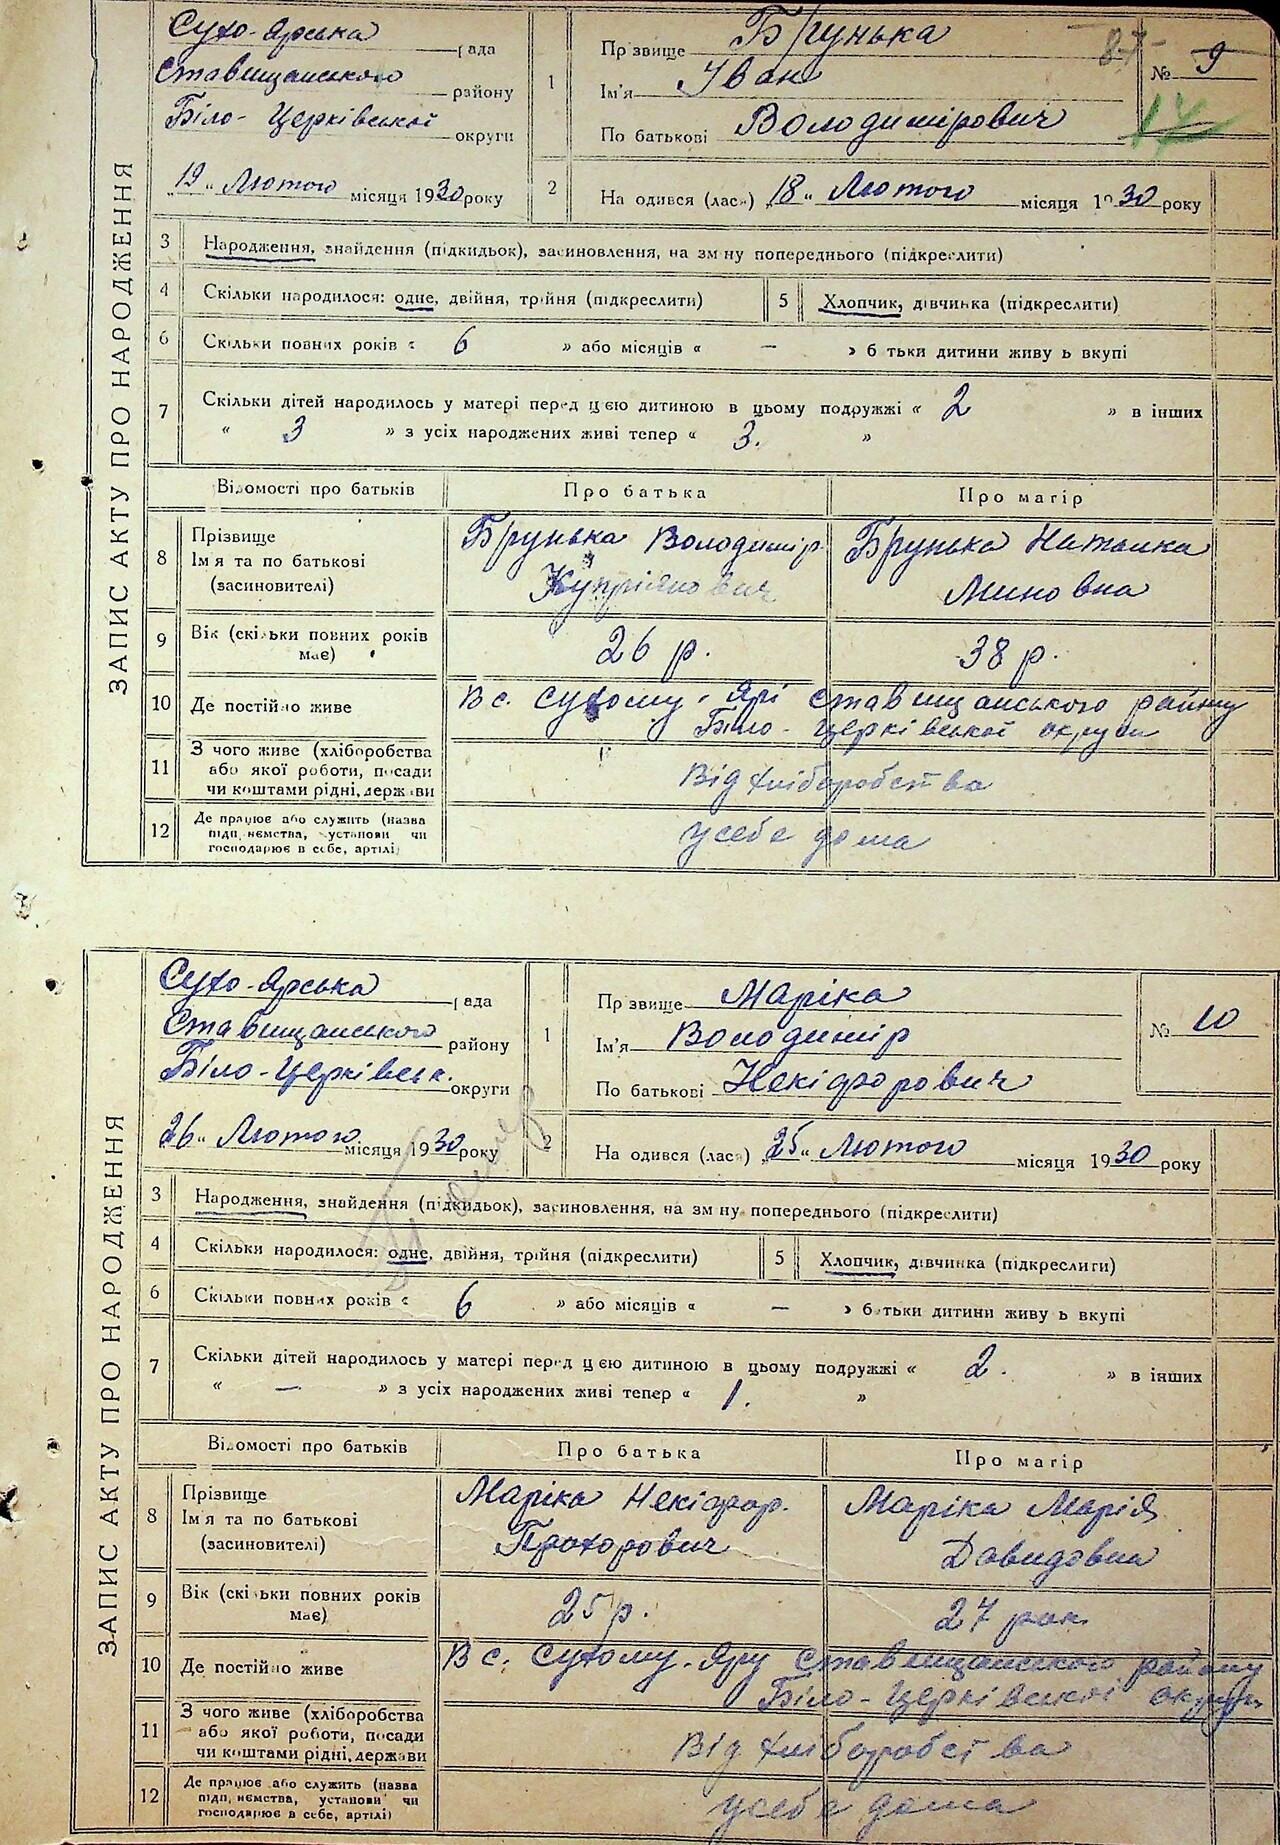 ЗАПИС АКТУ ПРО НАРОДЖЕННЯ
Сухо-Ярська рада
Ставищанського району
Біло-Церківської округи
"19" Лютого місяця 1930 року
1 Прізвище Брунька
Ім'я Іван
По батькові Володимірович
87
№ 9
2 На одився (лась) "18" Лютого місяця 1930 року
3 Народження, знайдення (підкидьок), засиновлення, на зміну попереднього (підкреслити)
4 Скільки народилося: одне, двійня, трійня (підкреслити) 5 Хлопчик, дівчинка (підкреслити)
6 Скільки повних років « 6 » або місяців « — » б тьки дитини живу ь вкупі
7 Скільки дітей народилось у матері перед цією дитиною в цьому подружжі « 2 » в інших
« 3 » з усіх народжених живі тепер « 3. »
Відомості про батьків Про батька Про матір
8 Прізвище
Ім'я та по батькові
(засиновителі)
Брунька Володимір
Купріянович
Брунька Наталка
Миновна
9 Вік (скільки повних років
має)
26 р. 38 р.
10 Де постійно живе В с. Сухому-Ярі Ставищанського району
Біло-Церківської округи
11 З чого живе (хліборобства
або якої роботи, посади
чи коштами рідні, держави
Від хліборобства
12 Де працює або служить (назва
підп иємства, установи чи
господарює в себе, артілі)
усебе дома
ЗАПИС АКТУ ПРО НАРОДЖЕННЯ
Сухо-Ярська рада
Ставищанського району
Біло-Церківськ. округи
26" Лютого місяця 1930 року
1 Прізвище Маріка
Ім'я Володимір
По батькові Некіфорович
№ 10
2 На одився (лась) "25" Лютого місяця 1930 року
3 Народження, знайдення (підкидьок), засиновлення, на зміну попереднього (підкреслити)
4 Скільки народилося: одне, двійня, трійня (підкреслити) 5 Хлопчик, дівчинка (підкреслити)
6 Скільки повних років « 6 » або місяців « — » б тьки дитини живу ь вкупі
7 Скільки дітей народилось у матері перед цією дитиною в цьому подружжі « 2. » в інших
« — » з усіх народжених живі тепер « 1. »
Відомості про батьків Про батька Про матір
8 Прізвище
Ім'я та по батькові
(засиновителі)
Маріка Некіфор.
Прохорович
Маріка Марія
Довидовна
9 Вік (скільки повних років
має)
25 р. 27 рок.
10 Де постійно живе В с. Сухому-Яру Ставищанського району
Біло-Церківської округи
11 З чого живе (хліборобства
або якої роботи, посади
чи коштами рідні, держави
Від хліборобства
12 Де працює або служить (назва
підп иємства, установи чи
господарює в себе, артілі)
усебе дома